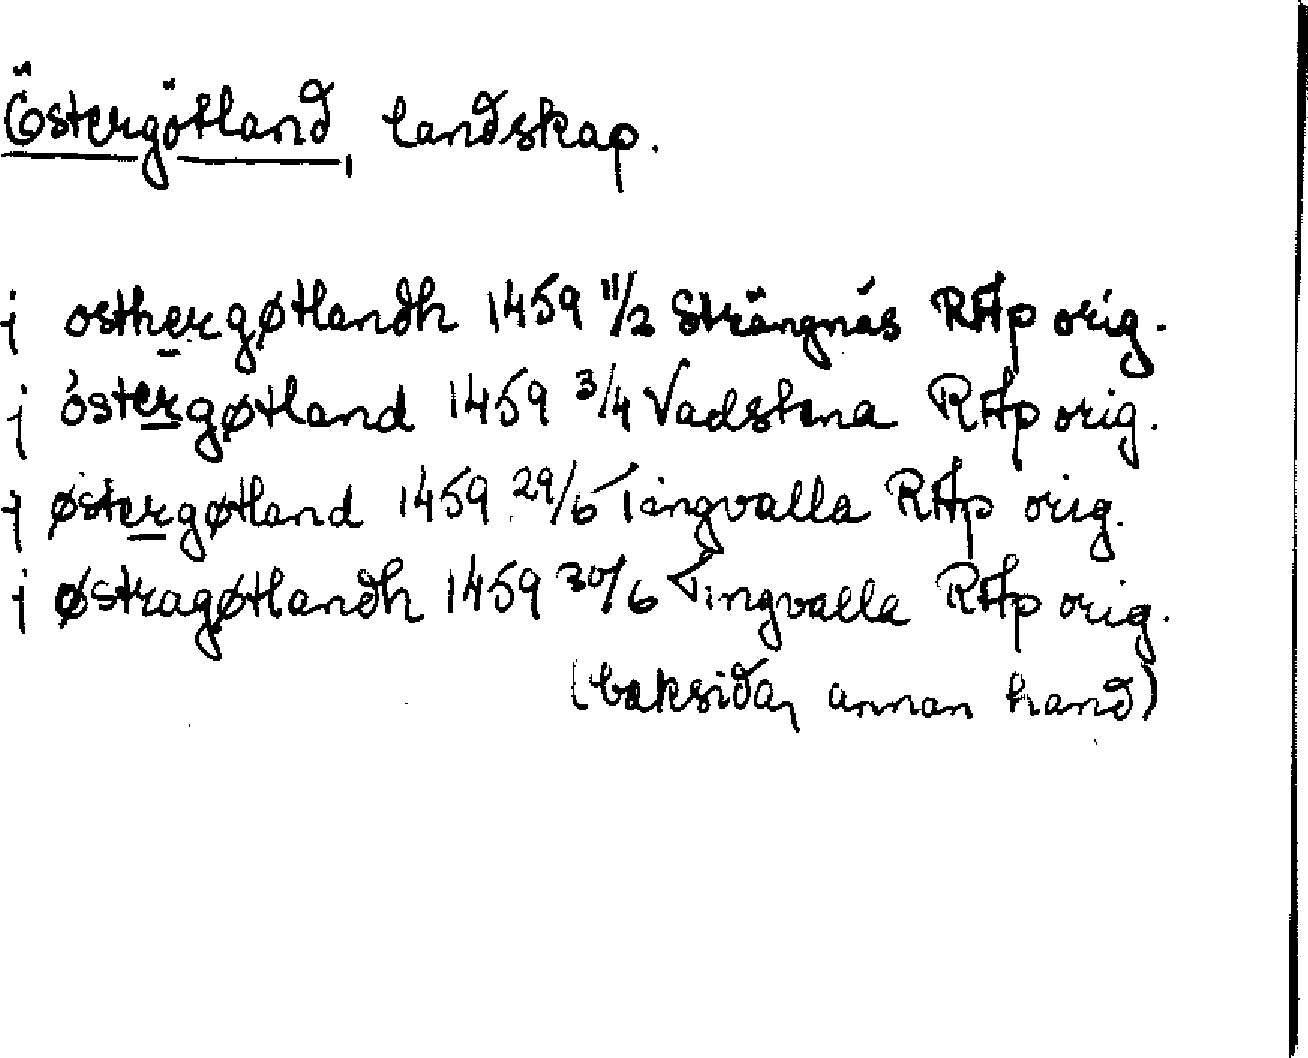 Östergötland, landskap.
j osthergøtlandh 1459 11/2 Strängnäs RAp orig.
j óstergøtland 1459 3/4 Vadstena RAp orig.
j østergøtland 1459 29/6 Tingvalla RAp orig.
j østragøtlandh 1459 30/6 Tingvalla RAp orig.
(baksida, annan hand)